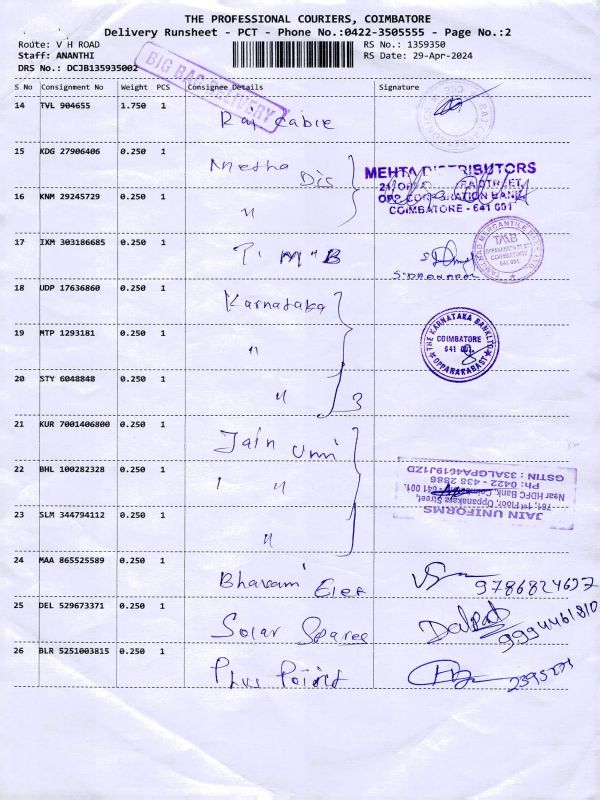 THE PROFESSIONAL COURIERS, COIMBATORE
Delivery Runsheet - PCT - Phone No.:0422-3505555 - Page No.:2
Route: V H ROAD
RS No.: 1359350
Staff: ANANTHI
RS Date: 29-Apr-2024
DRS No.: DCJB135935002
BIG BAG DELIVERY
S No Consignment No Weight PCS Consignee Details Signature
14 TVL 904655 1.750 1 Raj Cable
15 KDG 27906406 0.250 1 Metha Dis
MEHTA DISTRIBUTORS
16 KNM 29245729 0.250 1 "
COIMBATORE - 641 001
17 IXM 303186685 0.250 1 T. M. B
TAMILNAD MERCANTILE BANK LTD
TMB
COIMBATORE
641 001
18 UDP 17636860 0.250 1 Karnataka
THE KARNATAKA BANK LTD
COIMBATORE
641 001
19 MTP 1293181 0.250 1 "
20 STY 6048848 0.250 1 " 3
21 KUR 7001406800 0.250 1 Jain Uni
22 BHL 100282328 0.250 1 "
JAIN UNIFORMS
761, 1st Floor, Oppanakara Street,
Near HDFC Bank, Coimbatore - 641 001.
Ph: 0422 - 438 2886
GSTIN : 33ALGPA4619J1ZD
23 SLM 344794112 0.250 1 "
24 MAA 865525589 0.250 1 Bhavani Elec
25 DEL 529673371 0.250 1 Solar Spares Dalpat
26 BLR 5251003815 0.250 1 Plus Point